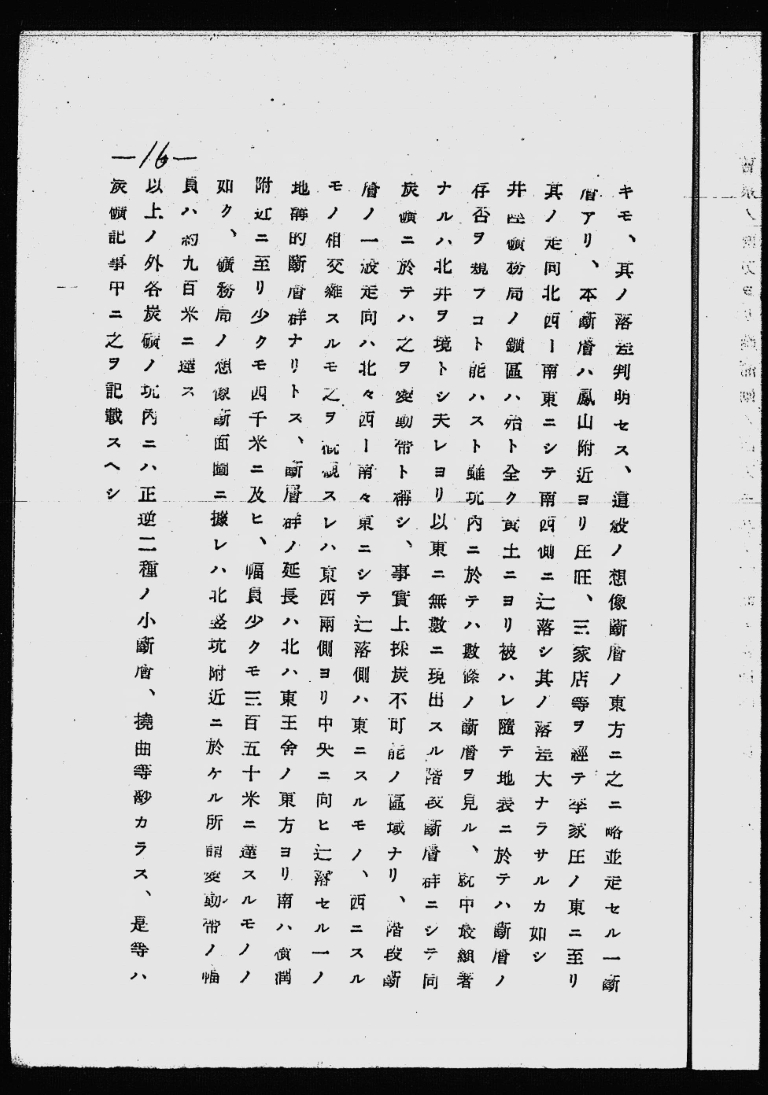 —16—
キモ、其ノ落差判明セス、這般ノ想像斷層ノ東方ニ之ニ略並走セル一斷
層アリ、本斷層ハ鳳山附近ヨリ圧旺、三家店等ヲ經テ李家圧ノ東ニ至リ
其ノ走向北西ー南東ニシテ南西側ニ辷落シ其ノ落差大ナラサルカ如シ
井陘礦務局ノ鑛區ハ殆ト全ク黃土ニヨリ被ハレ隨テ地表ニ於テハ斷層ノ
存否ヲ窺フコト能ハスト雖坑内ニ於テハ數條ノ斷層ヲ見ル、就中最顯著
ナルハ北井ヲ境トシ夫レヨリ以東ニ無數ニ現出スル階段斷層群ニシテ同
炭礦ニ於テハ之ヲ変動帶ト稱シ、事實上採炭不可能ノ區域ナリ、階段斷
層ノ一般走向ハ北々西ー南々東ニシテ辷落側ハ東ニスルモノ、西ニスル
モノ相交雜スルモ之ヲ概觀スレハ東西兩側ヨリ中央ニ向ヒ辷落セル一ノ
地溝的斷層群ナリトス、斷層群ノ延長ハ北ハ東王舍ノ東方ヨリ南ハ橫澗
附近ニ至リ少クモ四千米ニ及ヒ、幅員少クモ三百五十米ニ達スルモノノ
如ク、礦務局ノ想像斷面圖ニ據レハ北竪坑附近ニ於ケル所謂変動帶ノ幅
員ハ約九百米ニ達ス
以上ノ外各炭礦ノ坑内ニハ正逆二種ノ小斷層、撓曲等尠カラス、是等ハ
炭礦記事中ニ之ヲ記載スヘシ